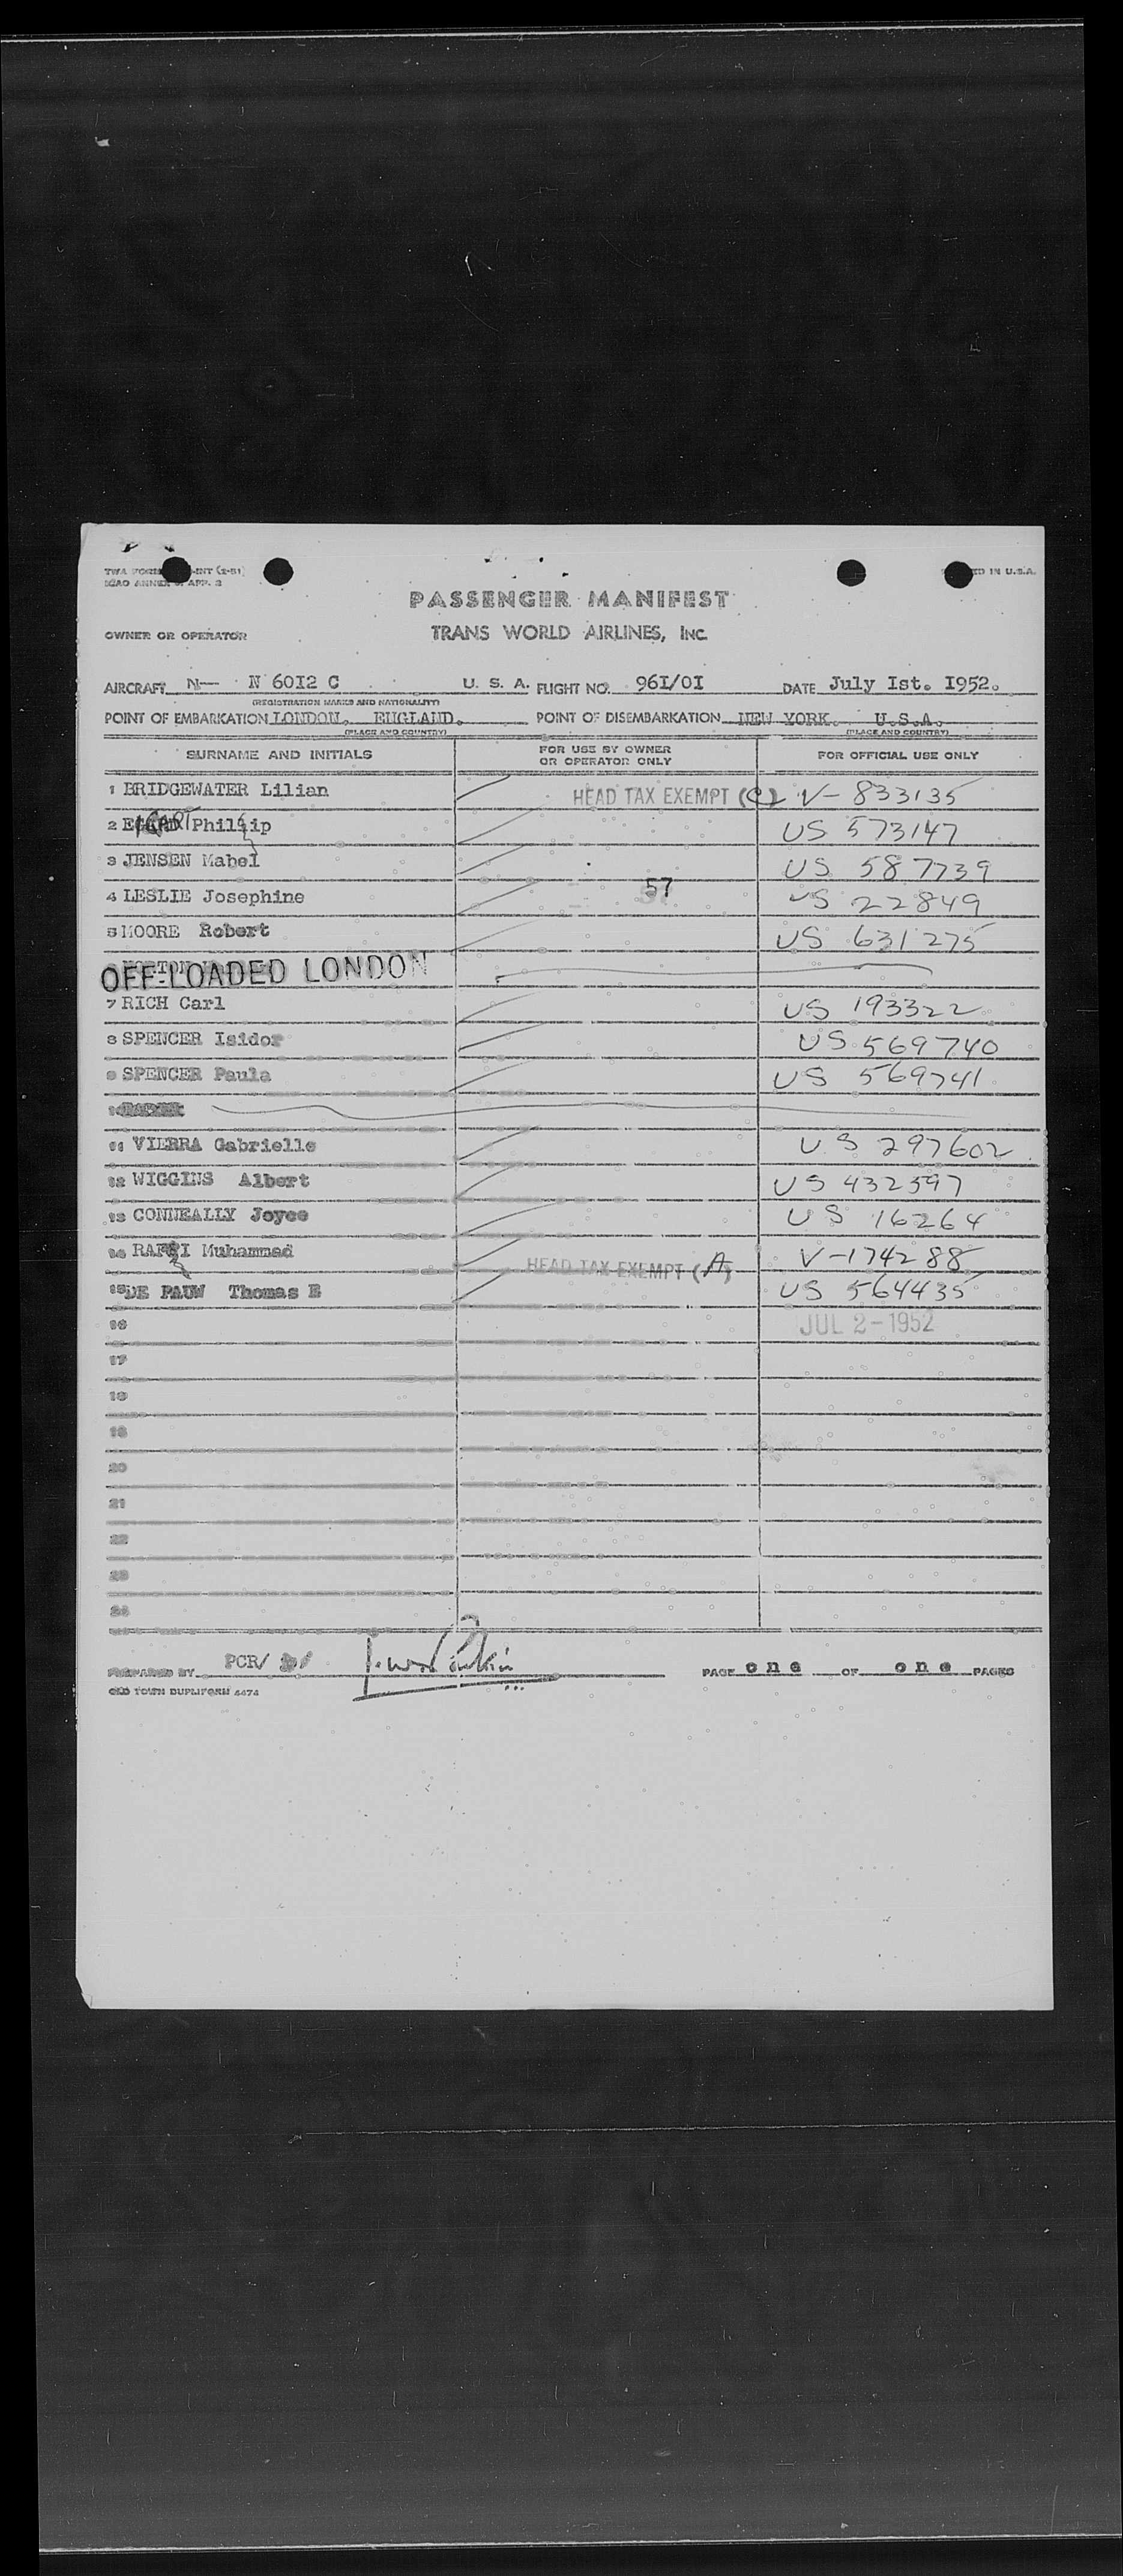 PASSENGER MANIFEST
OWNER OR OPERATOR TRANS WORLD AIRLINES, INC.
AIRCRAFT N— N 60I2 C U. S. A. FLIGHT NO. 96I/0I DATE July Ist. I952.
(REGISTRATION MARKS AND NATIONALITY)
POINT OF EMBARKATION LONDON. ENGLAND. POINT OF DISEMBARKATION NEW YORK. U.S.A.
(PLACE AND COUNTRY) (PLACE AND COUNTRY)
SURNAME AND INITIALS FOR USE BY OWNER OR OPERATOR ONLY FOR OFFICIAL USE ONLY
1 BRIDGEWATER Lilian HEAD TAX EXEMPT (C) V-833135
2 Phillip US 573147
3 JENSEN Mabel US 587739
4 LESLIE Josephine 57 US 22849
5 MOORE Robert US 631275
OFF-LOADED LONDON
7 RICH Carl US 193322
8 SPENCER Isidor US 569740
9 SPENCER Paula US 569741
10
11 VIERRA Gabrielle US 297602
12 WIGGINS Albert US 432597
13 CONNEALLY Joyce US 16264
14 Muhammad HEAD TAX EXEMPT (A) V-174288
15 DE PAUW Thomas E US 564435
16 JUL 2-1952
17
18
19
20
21
22
23
24
PREPARED BY PCR/ PAGE one OF one PAGES
OLD TOWN DUPLIFORM 4474